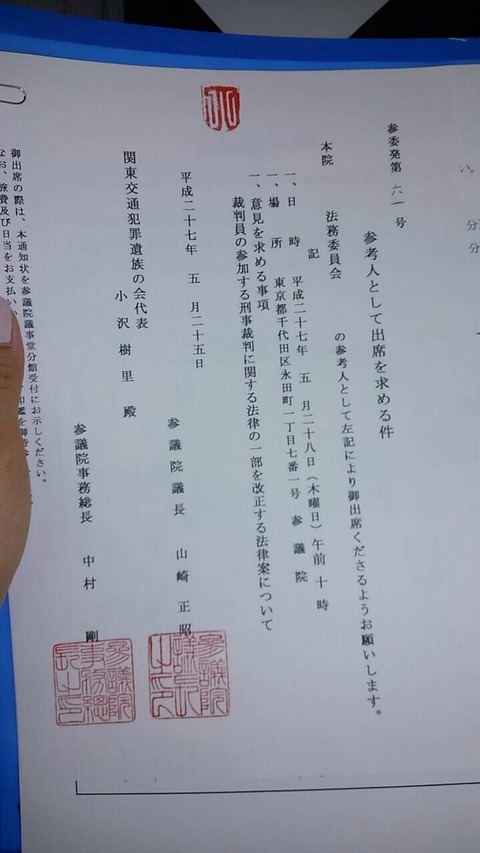 参委発第 六一 号
参考人として出席を求める件
本院 法務委員会 の参考人として左記により御出席くださるようお願いします。
記
一、日 時 平成二十七年 五 月二十八日(木曜日)午前 十 時
一、場 所 東京都千代田区永田町一丁目七番一号 参 議 院
一、意見を求める事項
裁判員の参加する刑事裁判に関する法律の一部を改正する法律案について
平成二十七年 五 月二十五日
参 議 院 議 長 山 崎 正 昭
参議院議長之印
関東交通犯罪遺族の会代表
小 沢 樹 里 殿
参議院事務総長 中 村 剛
参議院事務総長之印
御出席の際は、本通知状を参議院議事堂分館受付にお示しください。
なお、旅費及び日当をお支払い